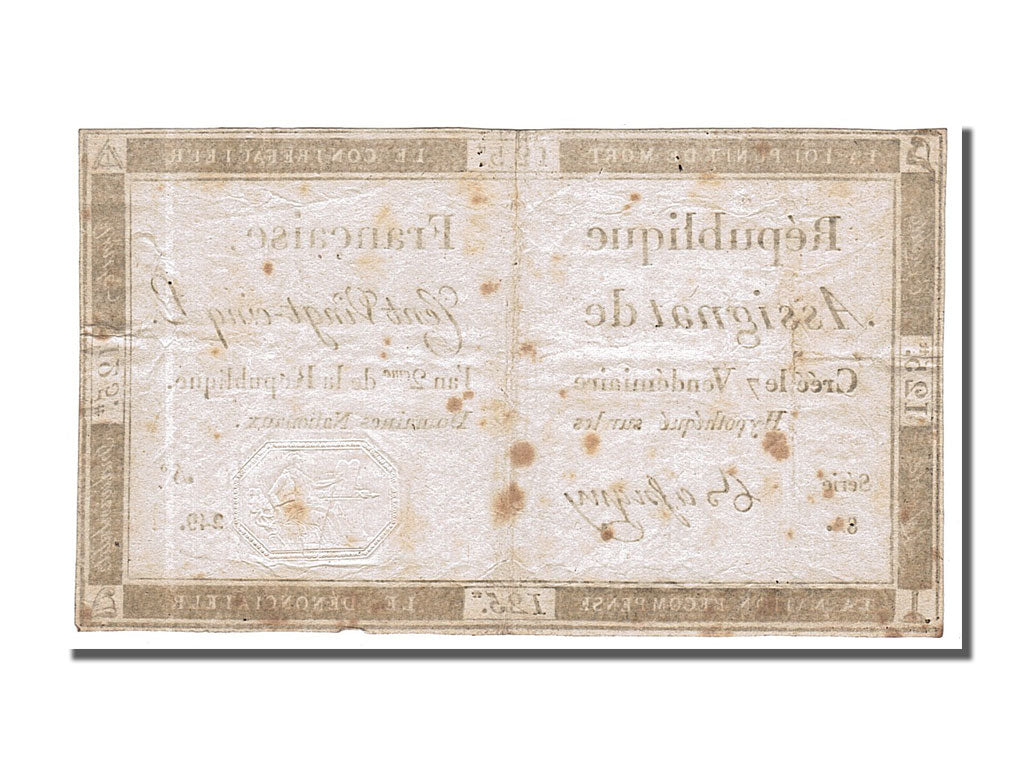 LA LOI PUNIT DE MORT 125.# LE CONTREFACTEUR
République Française.
Assignat de Cent Vingt-cinq L.
Créé le 7 Vendémiaire l'an 2eme de la République.
Hypothéqué sur les Domaines Nationaux.
Série
8
No
249.
125.#
125.#
LA NATION RECOMPENSE 125.# LE DENONCIATEUR